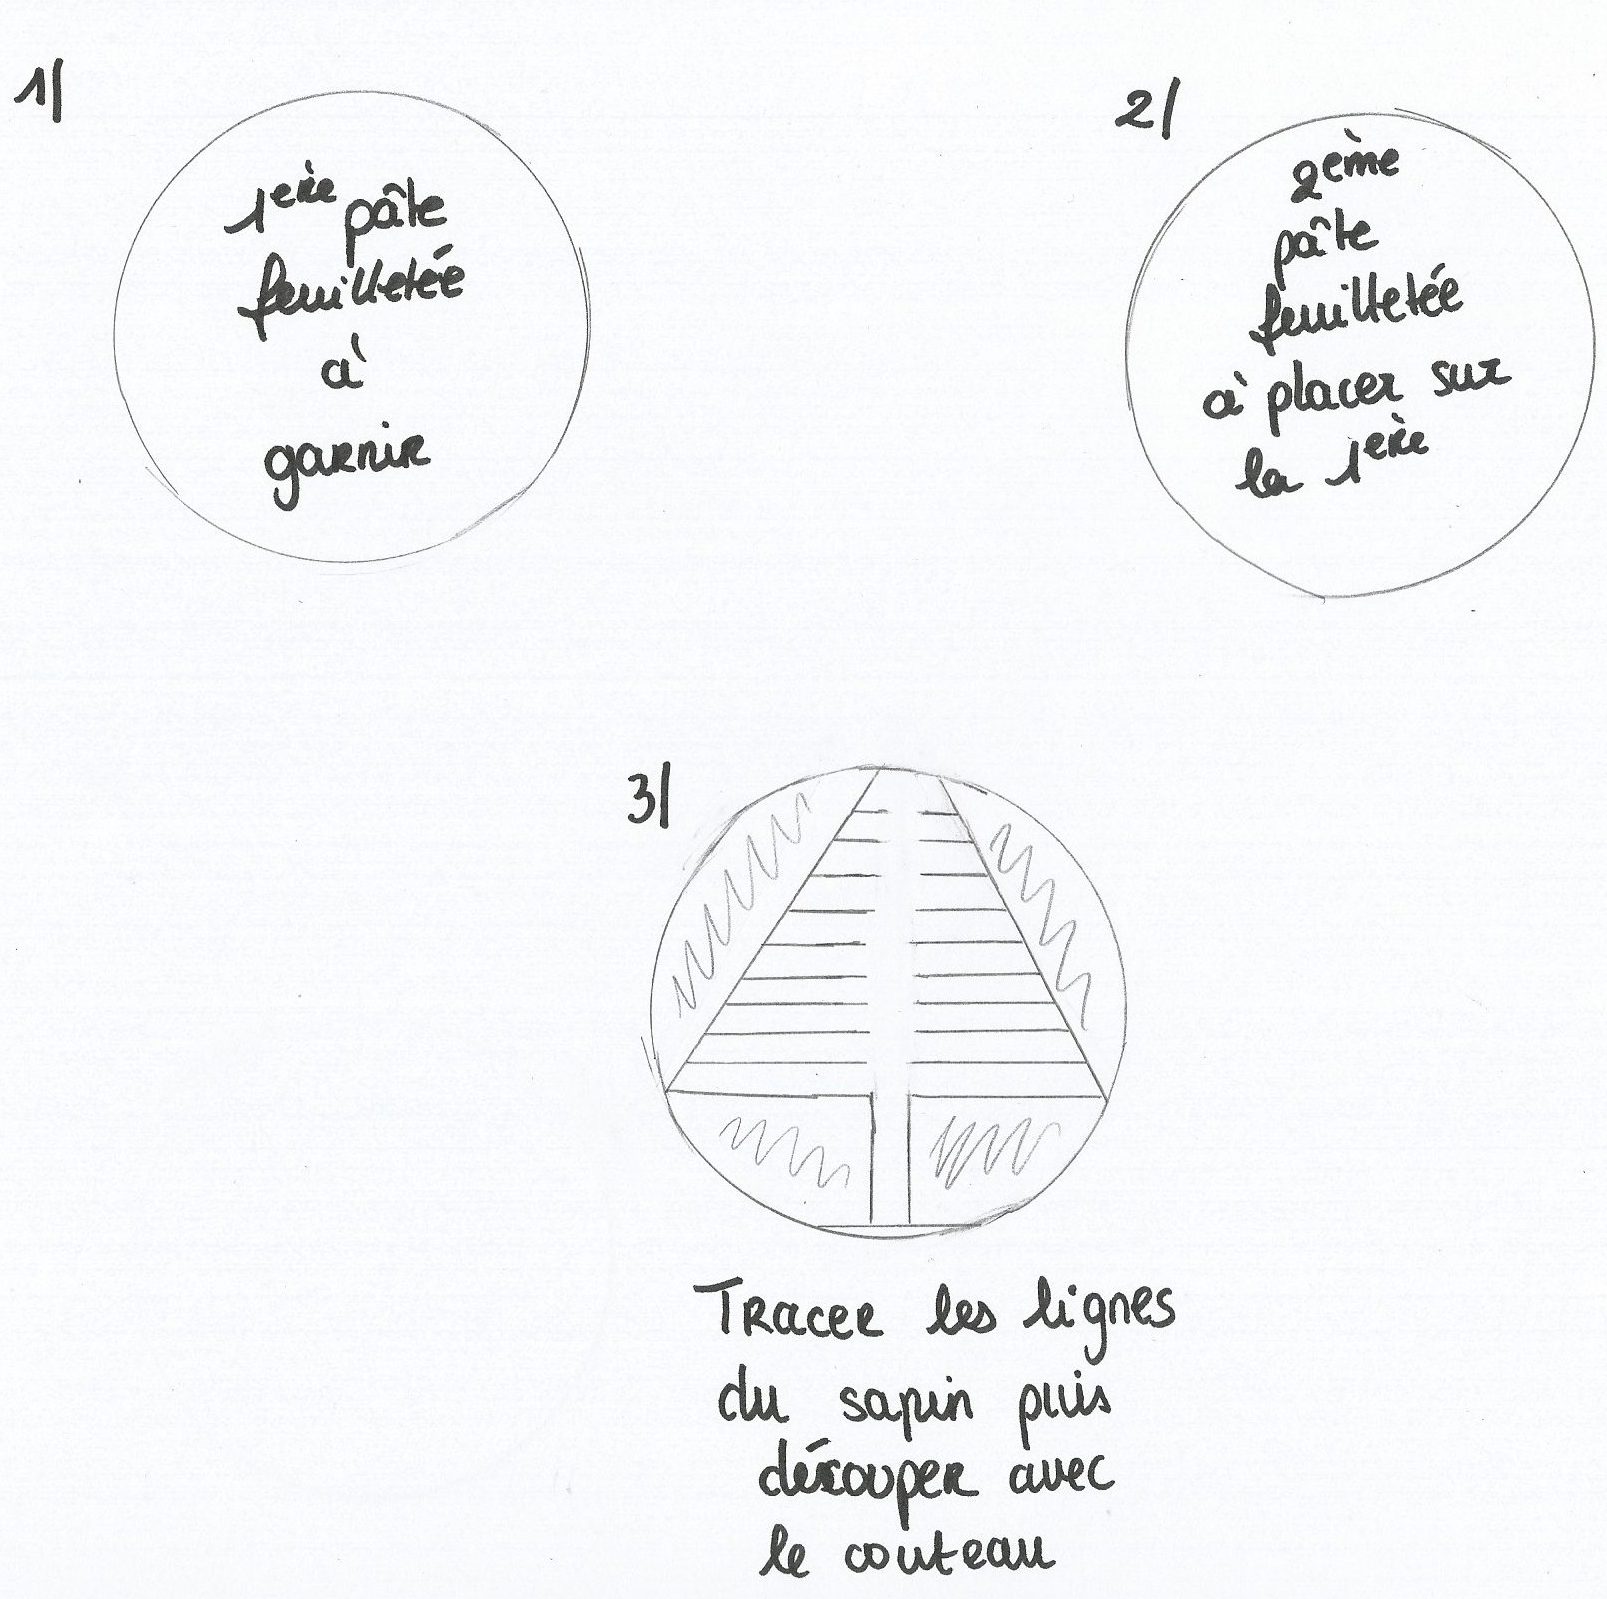 1/
1ère pâte
feuilletée
à
garnir
2/
2ème
pâte
feuilletée
à placer sur
la 1ère
3/
Tracer les lignes
du sapin puis
découper avec
le couteau